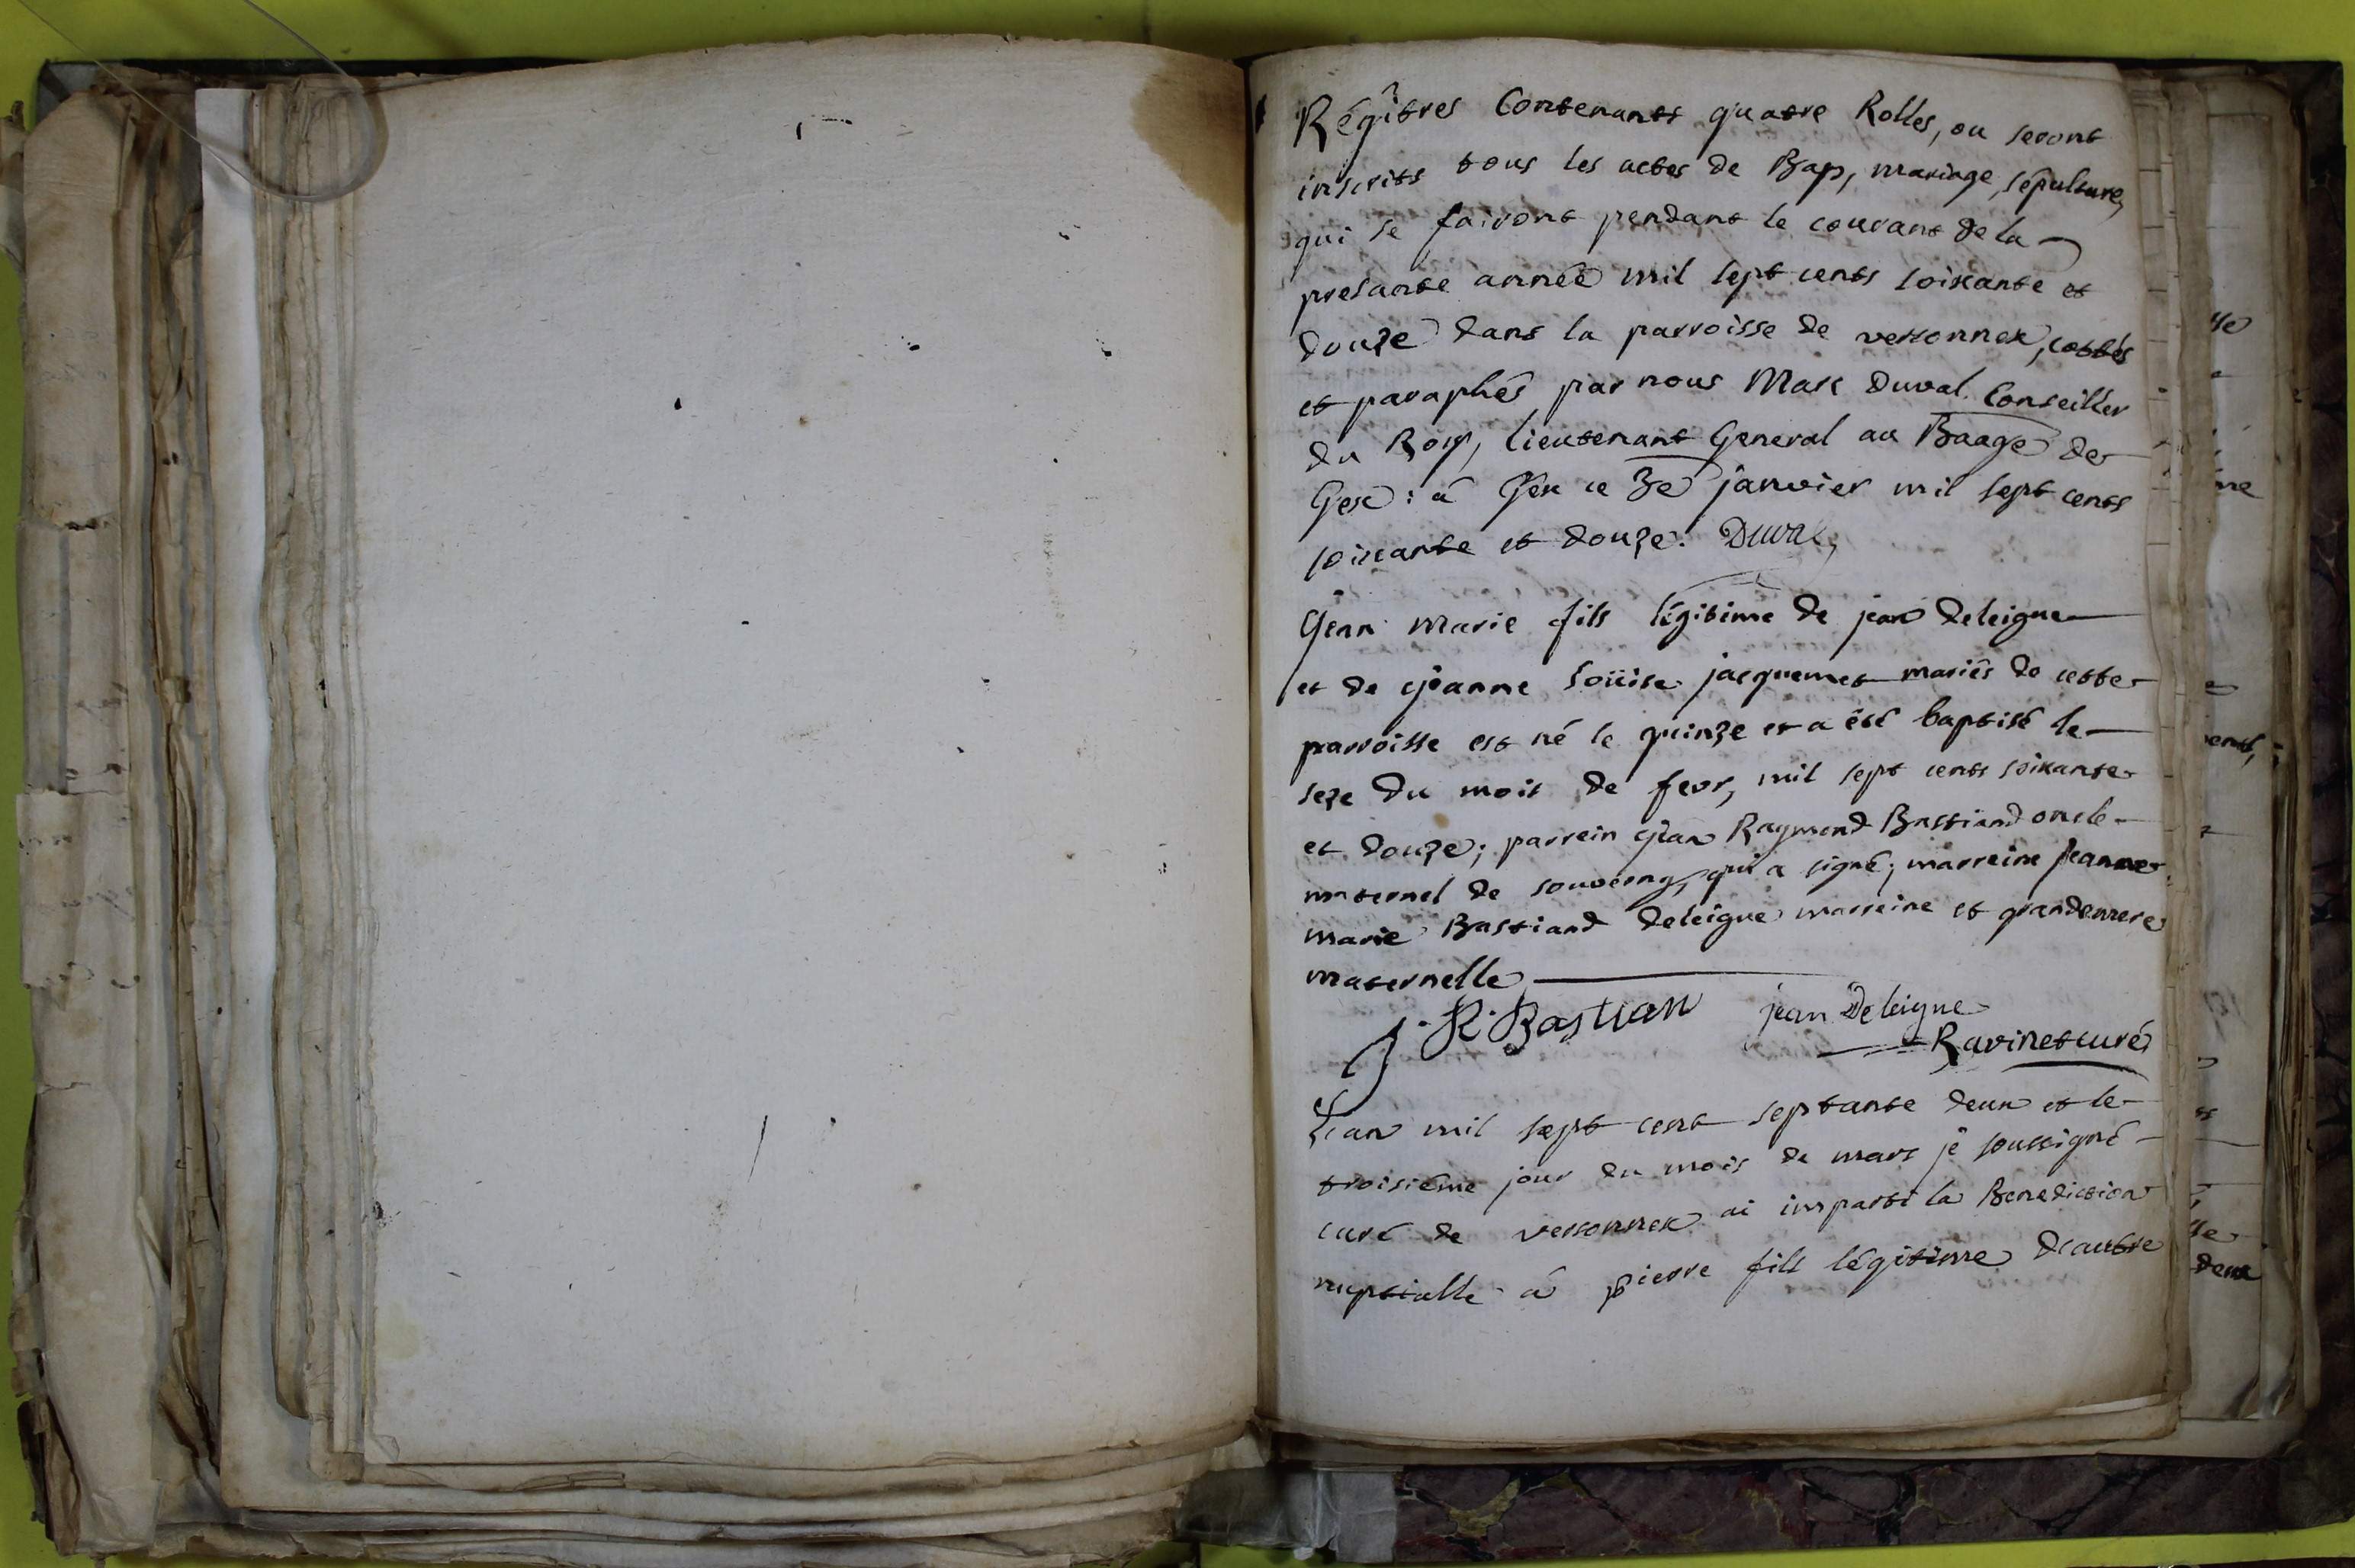 Régîtres Contenants quatre Rolles, ou seront
inscrits tous les actes de Bap, mariage, sépulture,
qui se fairont pendant le courant de la
presante année mil sept cents soixante et
douze dans la parroisse de versonnex, cottés
et paraphés par nous Marc Duval Conseiller
du Roy, lieutenant General au Baage de
Gex : á Gex ce 3e janvier mil sept cents
soixante et douze. Duval
Jean marie fils légitime de jean deleigue
et de jeanne Loüise jacquemet mariés de cette
parroisse est né le quinze et a été baptisé le
seze du mois de fevr, mil sept cents soixante
et douze ; parrein jean Raymond Bastiand oncle
maternel de souverny, qui a signé ; marreine jeanne
marie Bastiand deleigue marreine et grandemere
maternelle
J. R. Bastian jean Deleigue
Ravinet curé
L'an mil sept cent septante deux et le
troisiéme jour du mois de mars je soussigné
curé de versonnex ai imparti la Benediction
nuptialle á pierre fils légitime d'autre